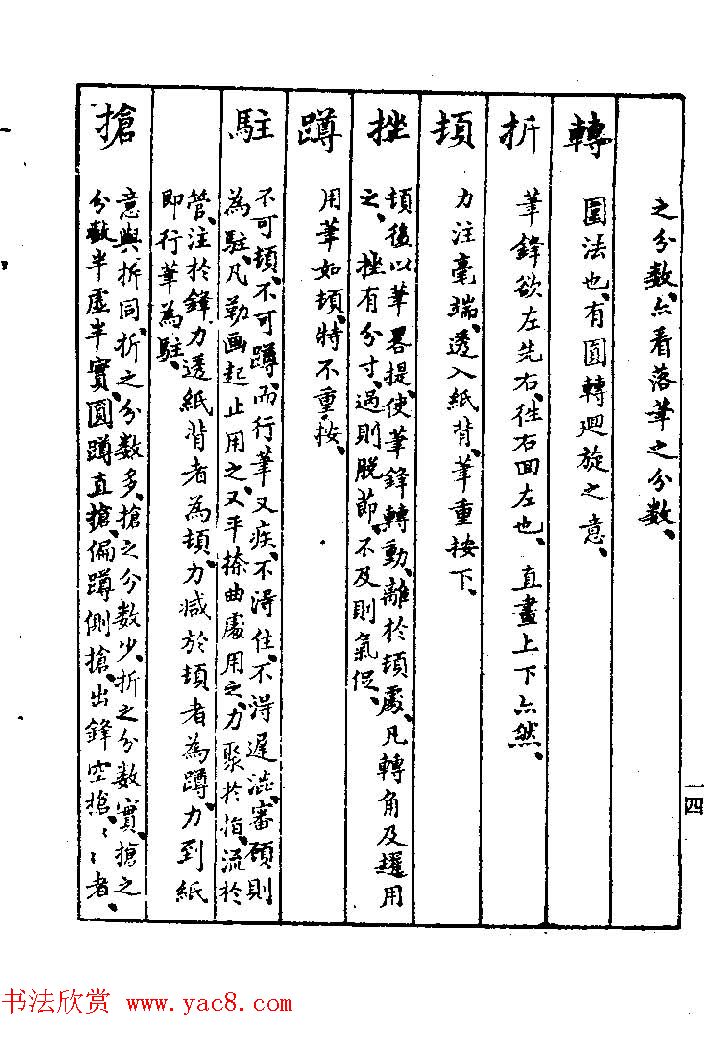 之分數、亦看落筆之分數、
轉 圓法也、有圓轉廻旋之意、
折 筆鋒欲左先右、往右回左也、直畫上下亦然、
頓 力注毫端、透入紙背、筆重按下、
挫 頓後以筆畧提、使筆鋒轉動、離於頓處、凡轉角及趯用
之、挫有分寸、過則脫節、不及則氣促、
蹲 用筆如頓、特不重按、
駐 不可頓、不可蹲、而行筆又疾、不得住、不得遲澁、審顧則
為駐、凡勒画起止用之、又平捺曲處用之、力聚於指、流於
管、注於鋒、力透紙背者為頓、力减於頓者為蹲、力到紙
即行筆為駐、
搶 意與折同、折之分數多、搶之分數少、折之分數實、搶之
分數半虛半實、圓蹲直搶、偏蹲側搶、出鋒空搶、〻〻者、
一四
书法欣赏 www.yac8.com